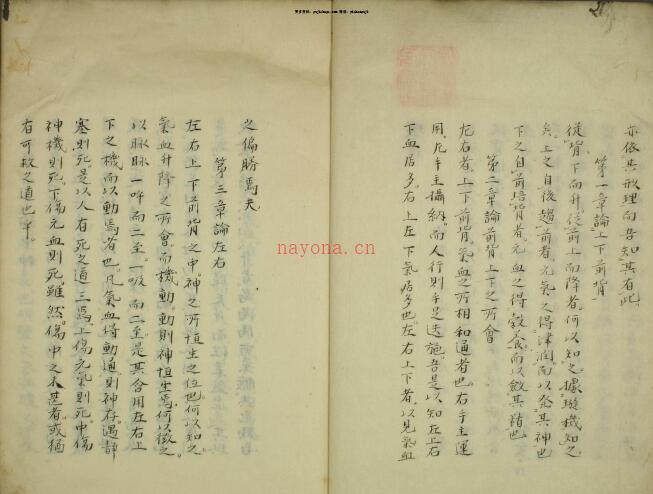 亦依其形理而告知其有此
第一章論上下前背
從背下而升從前上而降者何以知之據璇機知之
矣上之自後趨前者元氣之得津潤而以發其神也
下之自前趨背者元血之得穀養而以斂其諸也
第二章論前背上下之所會
左右者上下前背氣血之所相和通者也右手主運
用左手主攝納而人行則手足迭施吾是以知左上右
下血居多右上左下氣居多也左右上下者以見氣血
之偏勝焉夫
第三章論左右
左右上下前背之中神之所恒生之位也何以知之
氣血升降之所會而機動動則神恒生焉何以徵之
以脉脉一呼而二至一吸而二至是其合用左右上
下之機而以動焉者也凡氣血得動通則神存遇靜
塞則死是以人有死之道三焉上傷元氣則死中傷
神機則死下傷元血則死雖然傷中之不甚者或猶
有可救之道也乎
nayona.cn